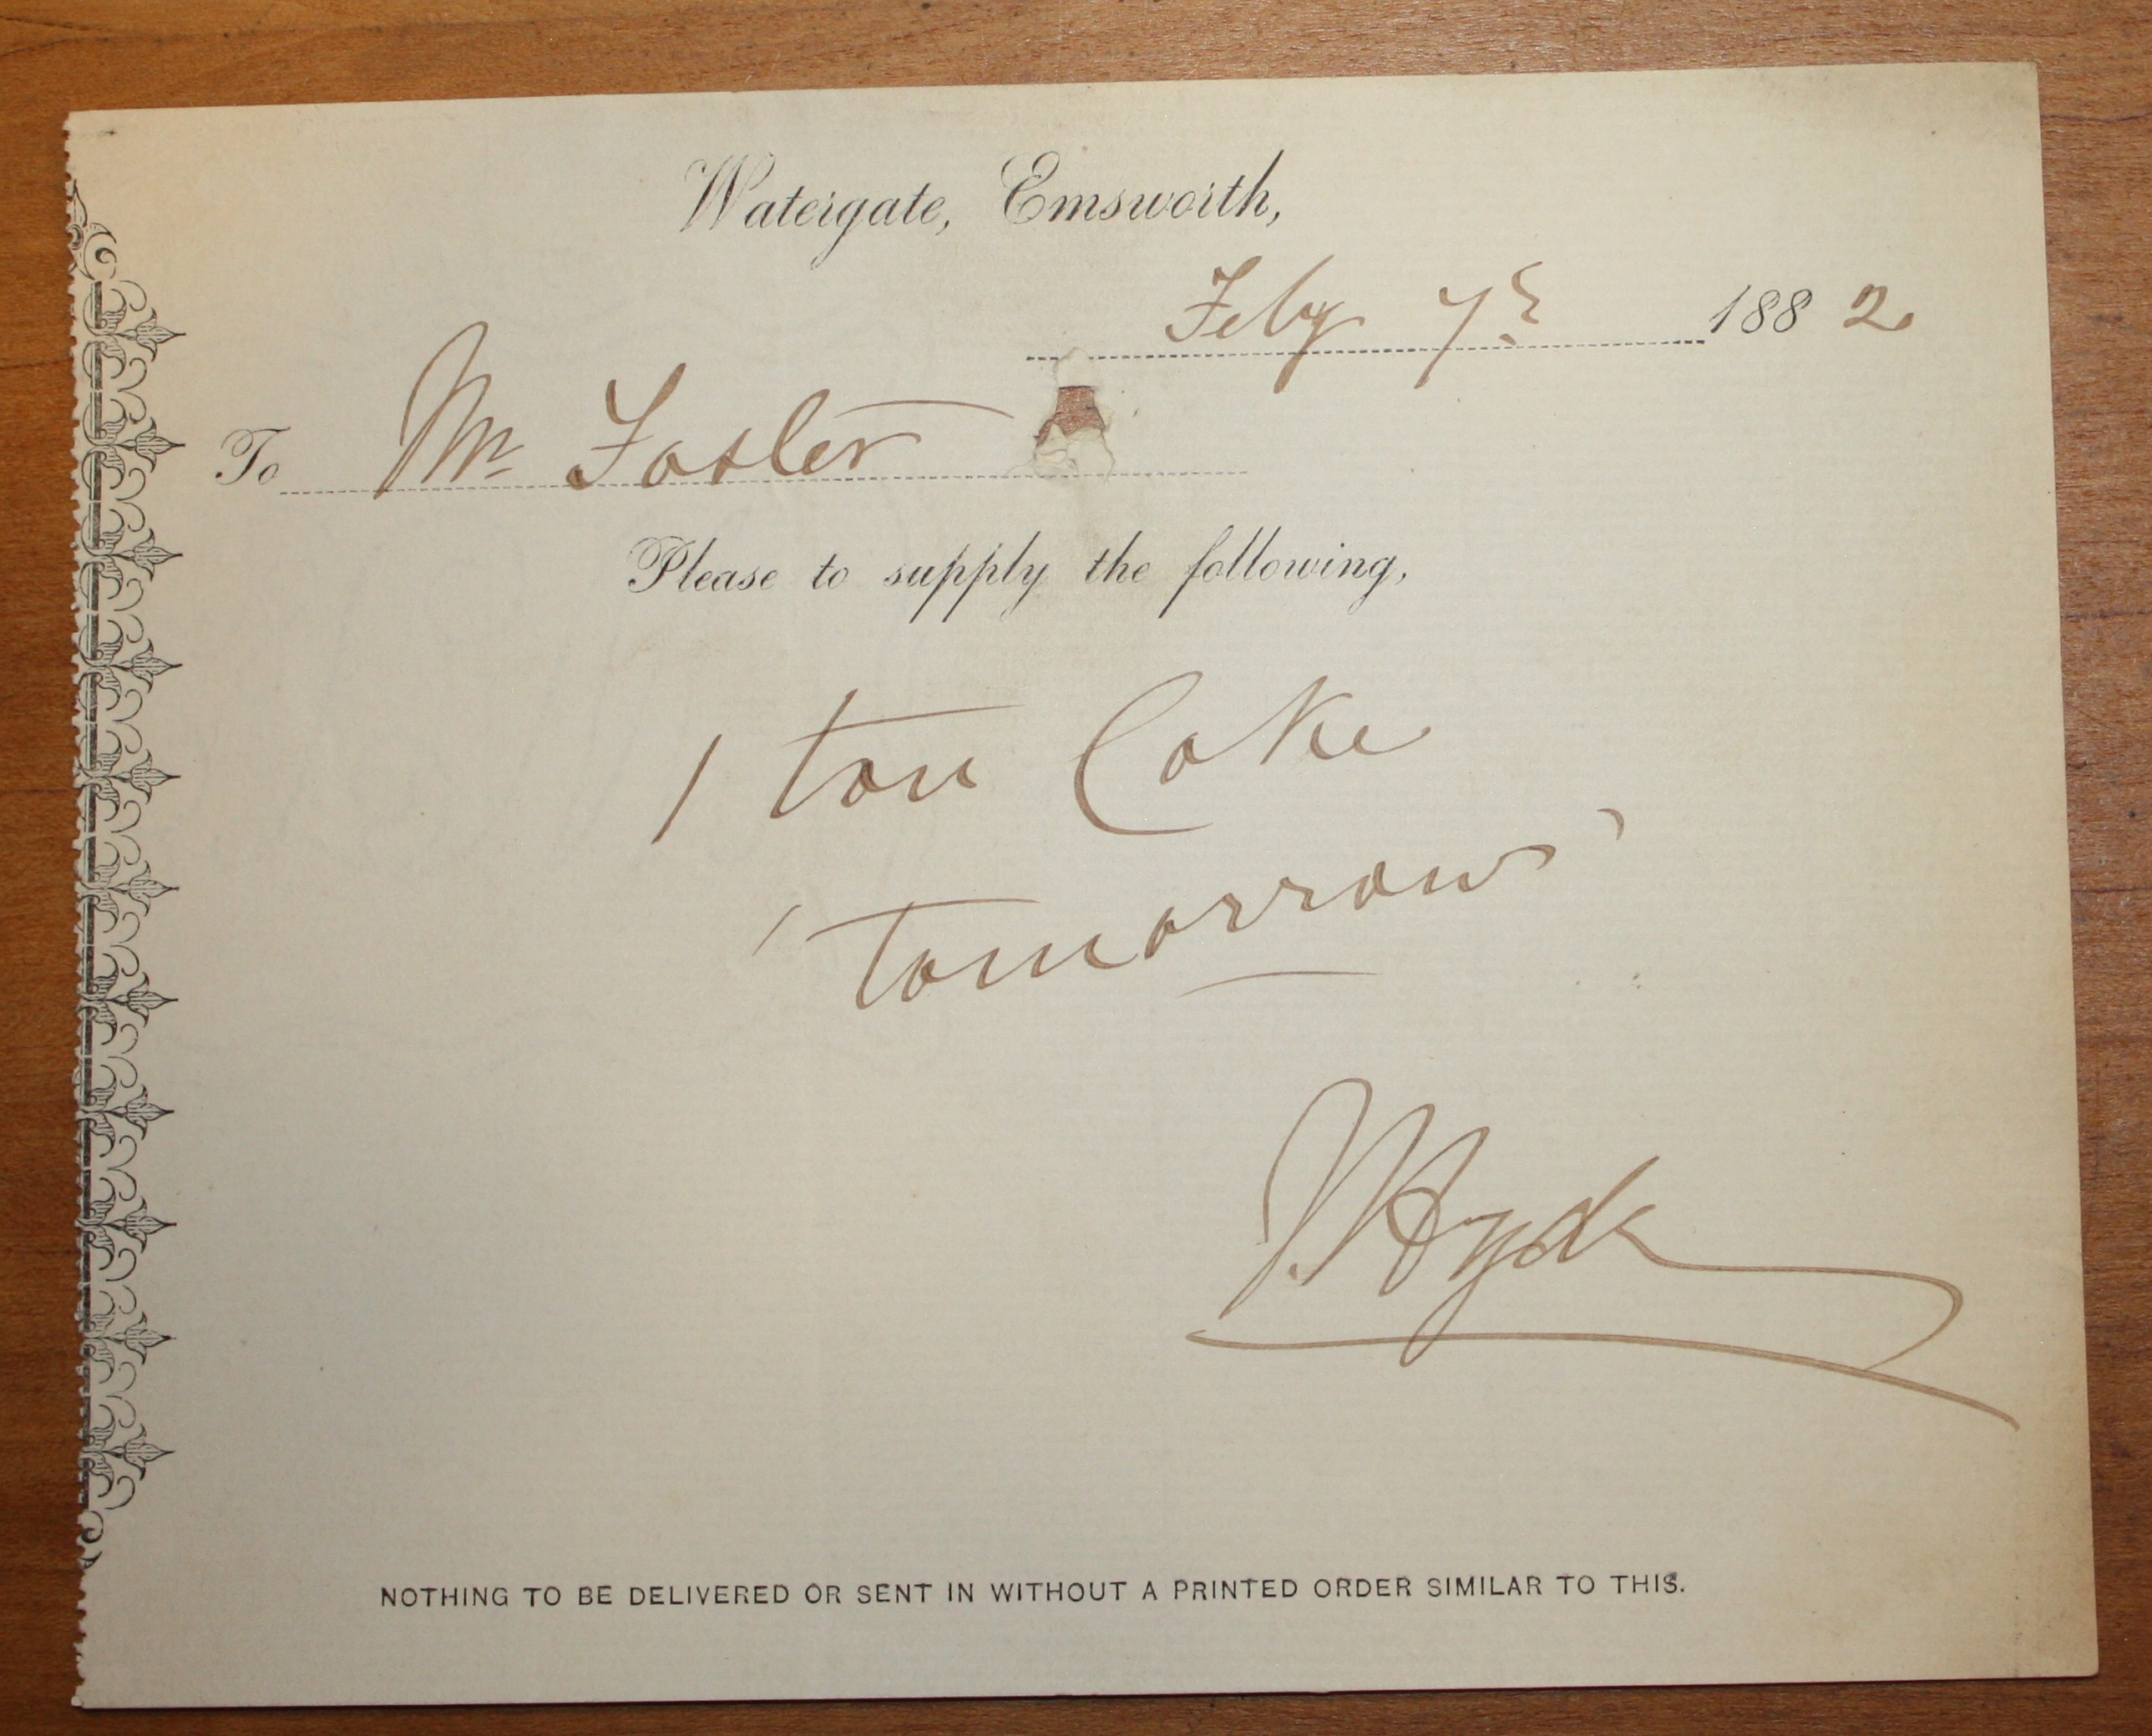 Watergate, Emsworth,
Feby 7th 1882
To Mr Foster
Please to supply the following,
1 ton Coke
tomorrow
Hyde
NOTHING TO BE DELIVERED OR SENT IN WITHOUT A PRINTED ORDER SIMILAR TO THIS.